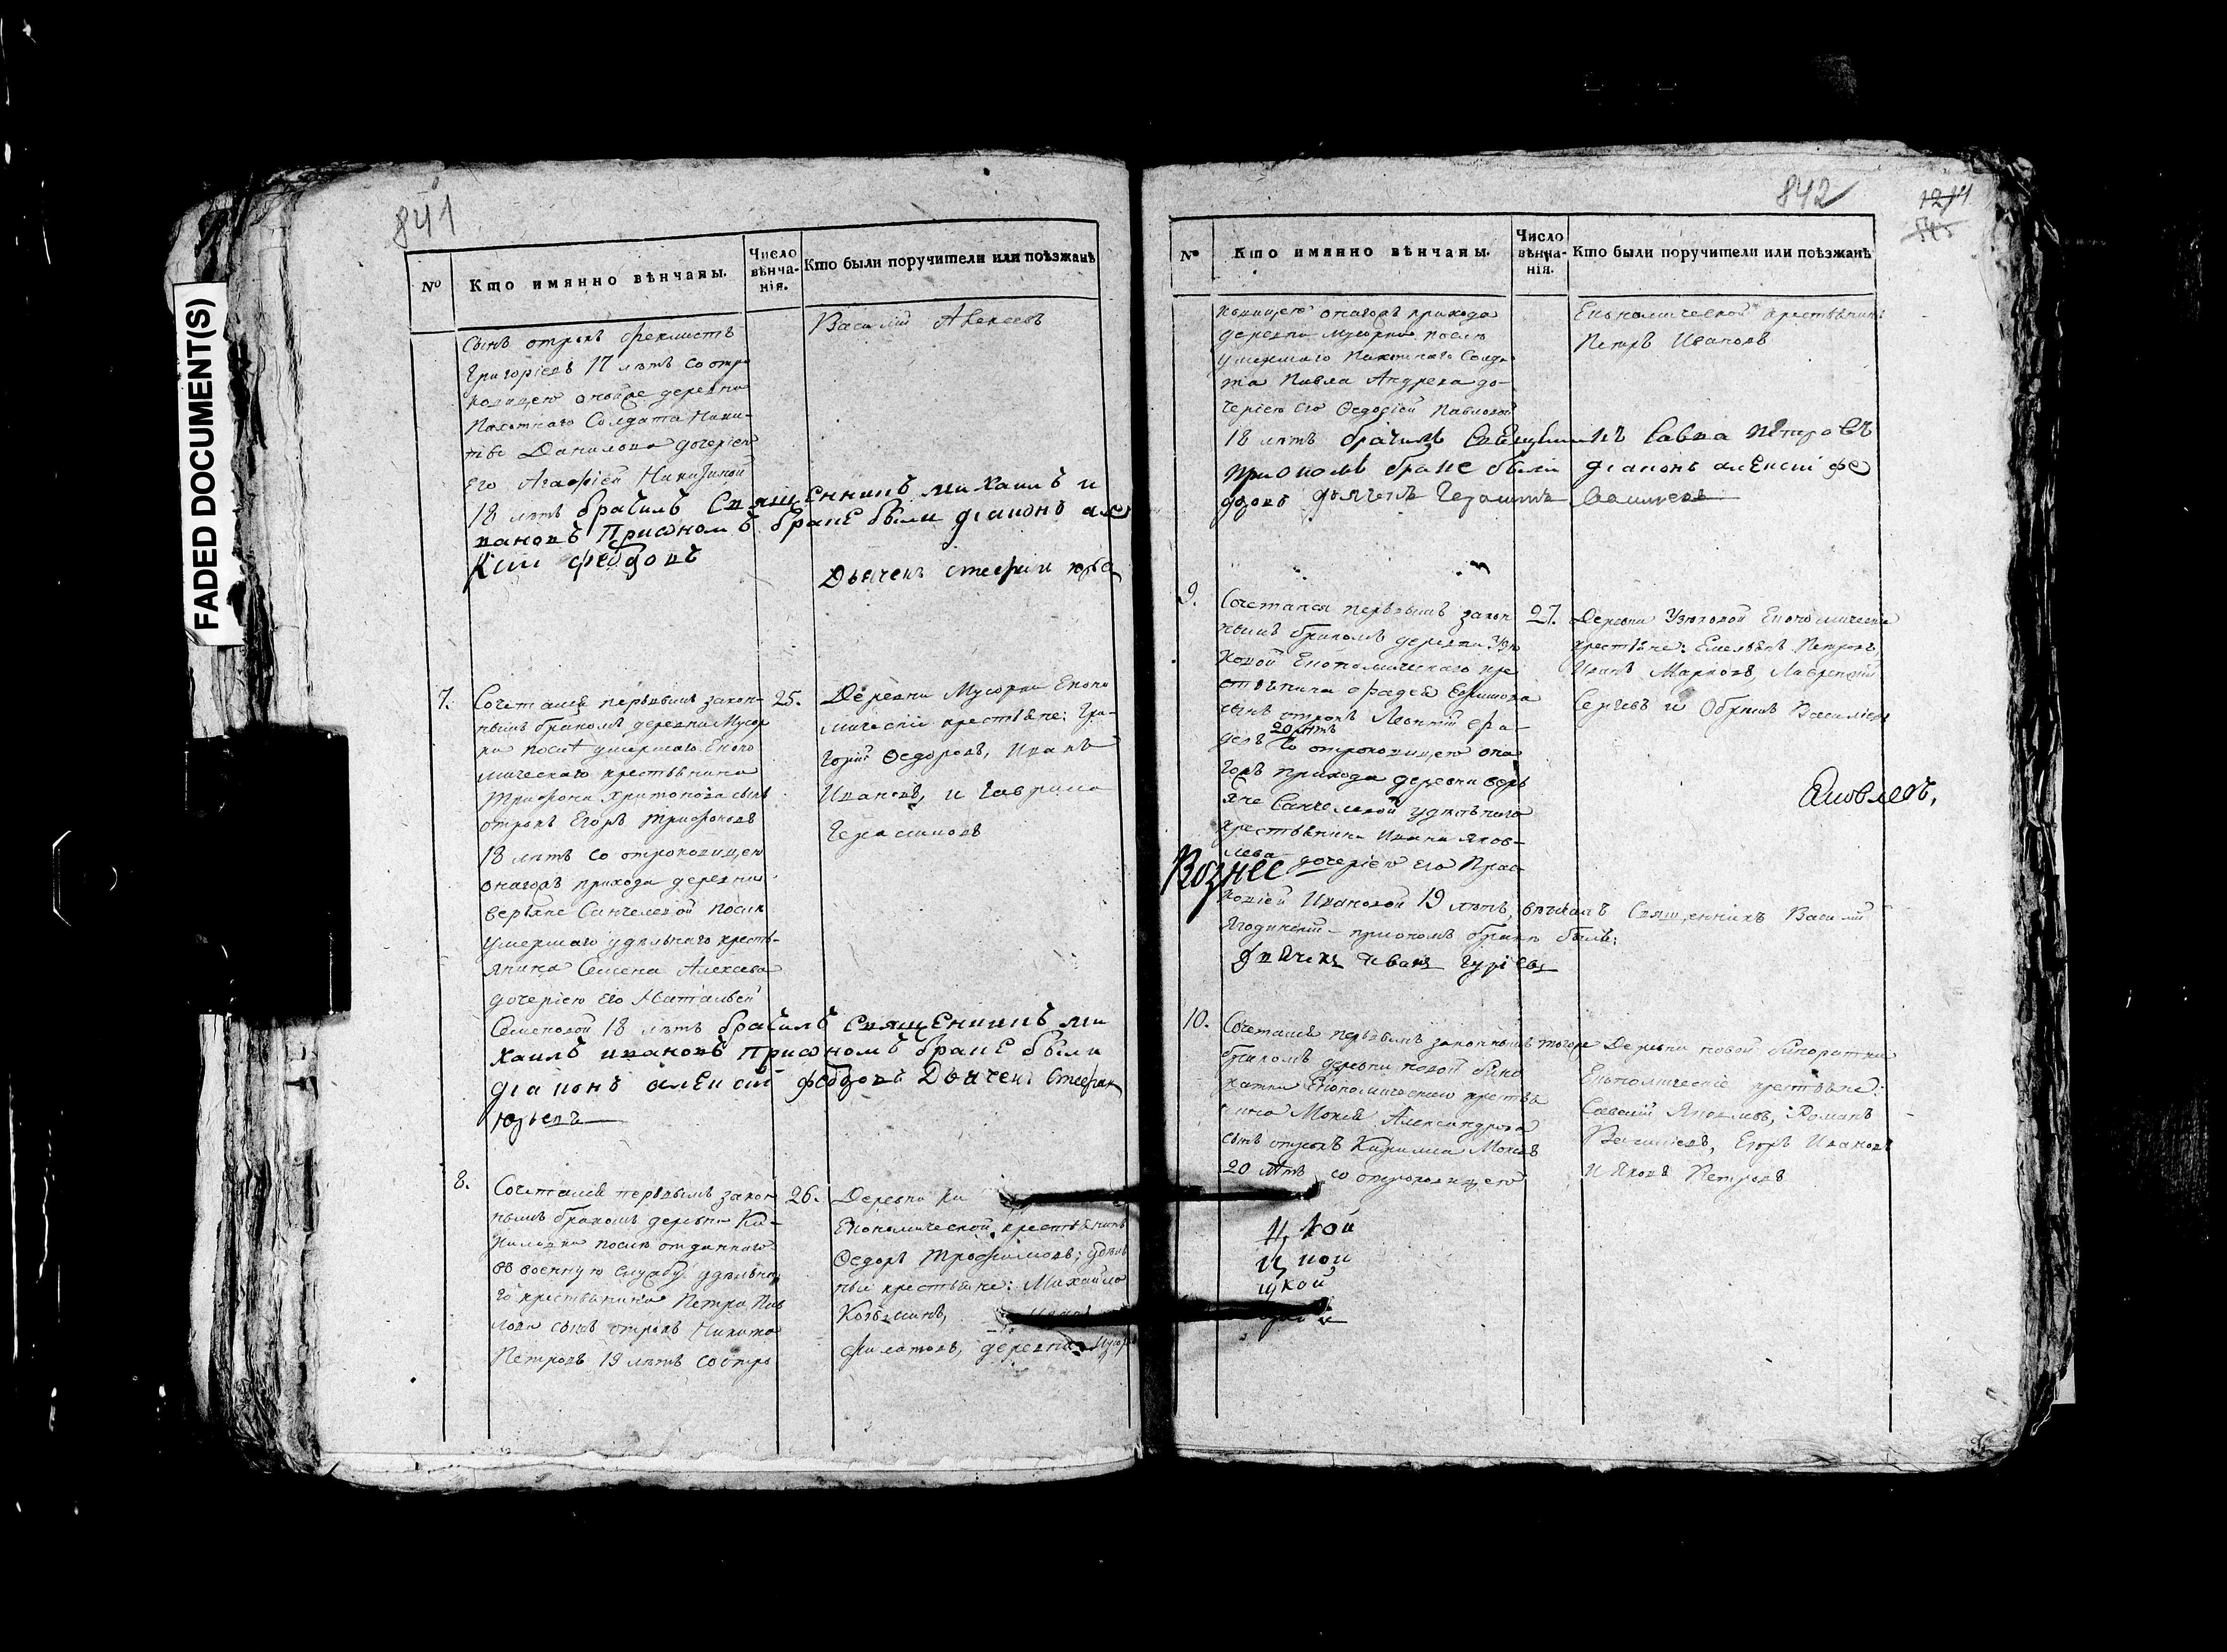 FADED DOCUMENT(S)
841
№
Кто имянно вѣнчаны.
Число вѣнча-нія.
Кто были поручители или поѣзжанѣ
сынъ отрокъ Феклистъ
Григорьевъ 17 лѣтъ со отро
ковицею оной же деревни
Пахотнаго Солдата Ники-
ты Данилова дочерью
Его Агафіей Никитиной
18 лѣтъ брачилъ Священникъ михаилъ и
вановъ Присномъ браке были діаконъ але
ксіи федоровъ
Василій Алексеевъ
Дьячекъ стефан юрье
7.
Сочетался первымъ закон-
нымъ бракомъ деревни Мусор
ки послѣ умершаго Еконо
мическаго крестьянина
Трифона Харитонова сынъ
отрокъ Егоръ Трифоновъ
18 лѣтъ со отроковицею
онагожъ прихода деревни
верхне Санчелевой послѣ
умершаго удѣльнаго кресть-
янина Семена Алексева
дочерію его Натальей
Семеновой 18 лѣтъ брачилъ священникъ ми
хаилъ ивановъ присномъ браке были
діаконъ алексій федоровъ Дьячекъ Стефан
юрьевъ
25.
Деревни Мусорки Еконо
мическіе крестьяне: Гри-
горій Федоровъ, Иванъ
Ивановъ, и Гаврила
Герасимовъ
8.
Сочетался первымъ закон
нымъ бракомъ деревни Ки-
риловки послѣ отданнаго
въ военную службу удѣльна
го крестьянина Петра Пав
лова сынъ отрокъ Никита
Петровъ 19 лѣтъ со отро
26.
Деревни Ки
Економической крестьянинъ
Федоръ Трофимовъ; удѣль
ные крестьяне: Михайло
Козьминъ,
Филатовъ, деревни Мусор
842
1214
№
Кто имянно вѣнчаны.
Число вѣнча-нія.
Кто были поручители или поѣзжанѣ
ковицею онагожъ прихода
деревни Мусорки послѣ
умершаго Пахотнаго Солда-
та Павла Андреева до-
черію его Федосіей Павловой
18 лѣтъ брачилъ Священникъ Савва Петровъ
при ономъ браке были діаконъ алексіи фе
доровъ дьячекъ Герасимъ
Економической крестьянинъ
Петръ Ивановъ
9.
Сочетался первымъ закон
нымъ бракомъ деревни Узю
ковой Економическаго кре
стьянина Фадея Ефимова
сынъ отрокъ Леонтій Фа-
деевъ 20 лѣтъ со отроковицею она
гожъ прихода деревни верх
нѣ Санчелевой удѣльнаго
крестьянина Ивана Яков-
лева дочерію его Прас
ковіей Ивановой 19 лѣтъ, вѣнчалъ Священникъ Василій
Ягодинскій приономъ бракѣ былъ:
дьячекъ Иванъ Гурьевъ
Вознес
27.
Деревни Узюковой Економическіе
крестьяне: Емельянъ Петровъ,
Иванъ Марковъ, Лаврентій
Сергѣевъ и Василіевъ
Яковлевъ,
10.
Сочетался первымъ законнымъ
бракомъ деревни новой Бино
радки Економическаго крестья
нина Мокея Александрова
сынъ отрокъ Кирилла Мокеевъ
20 лѣтъ со отроковицею
тогоже
Деревни новой бинорадки
Економическіе крестьяне:
Савелій Яковлевъ, Романъ
Василіевъ, Егоръ Ивановъ
и Яковъ Петровъ
цкой
цкой
цкой